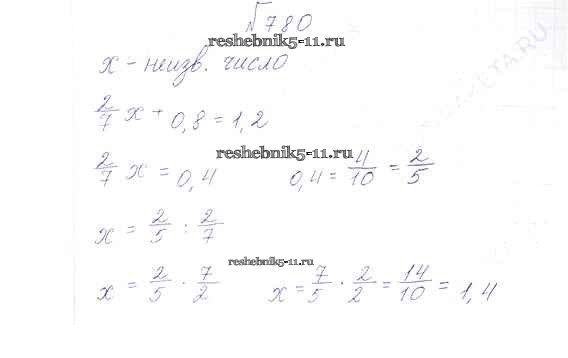 √780
reshebnik5-11.ru
x - неизв. число
2/7 x + 0,8 = 1,2
reshebnik5-11.ru
2/7 x = 0,4 0,4 = 4/10 = 2/5
x = 2/5 : 2/7
reshebnik5-11.ru
x = 2/5 · 7/2 x = 7/5 · 2/2 = 14/10 = 1,4